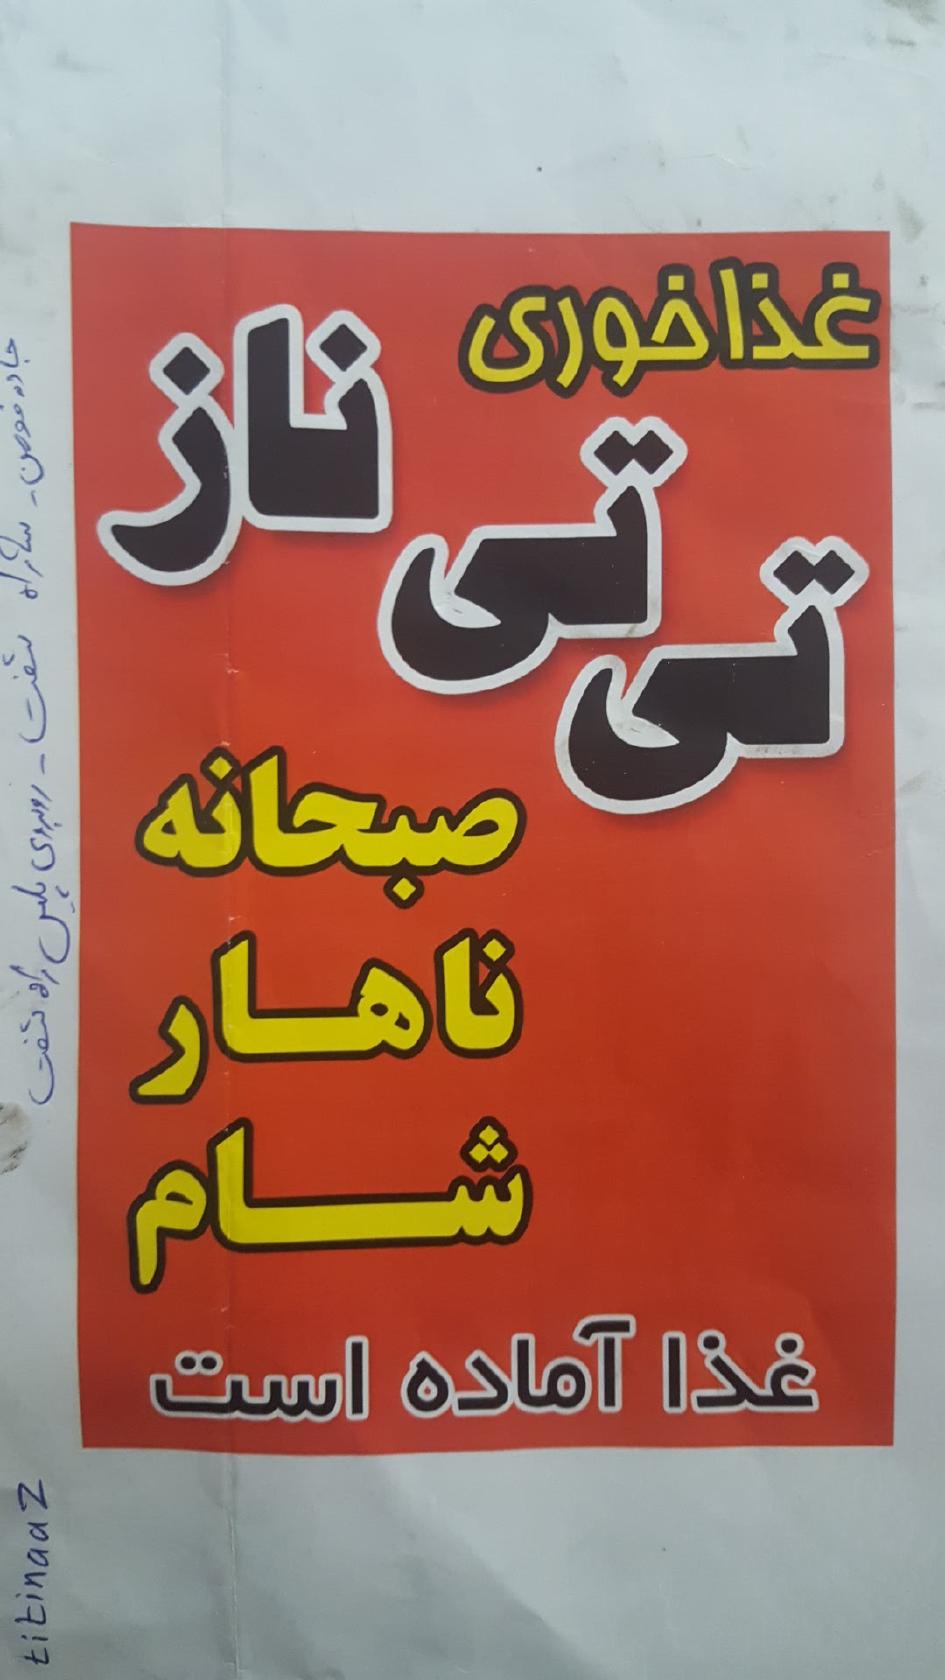 غذاخوری
تی تی ناز
صبحانه
ناهار
شام
غذا آماده است
جاده فومن - سه راه شفت - روبروی پلیس راه شفت
titinaaz